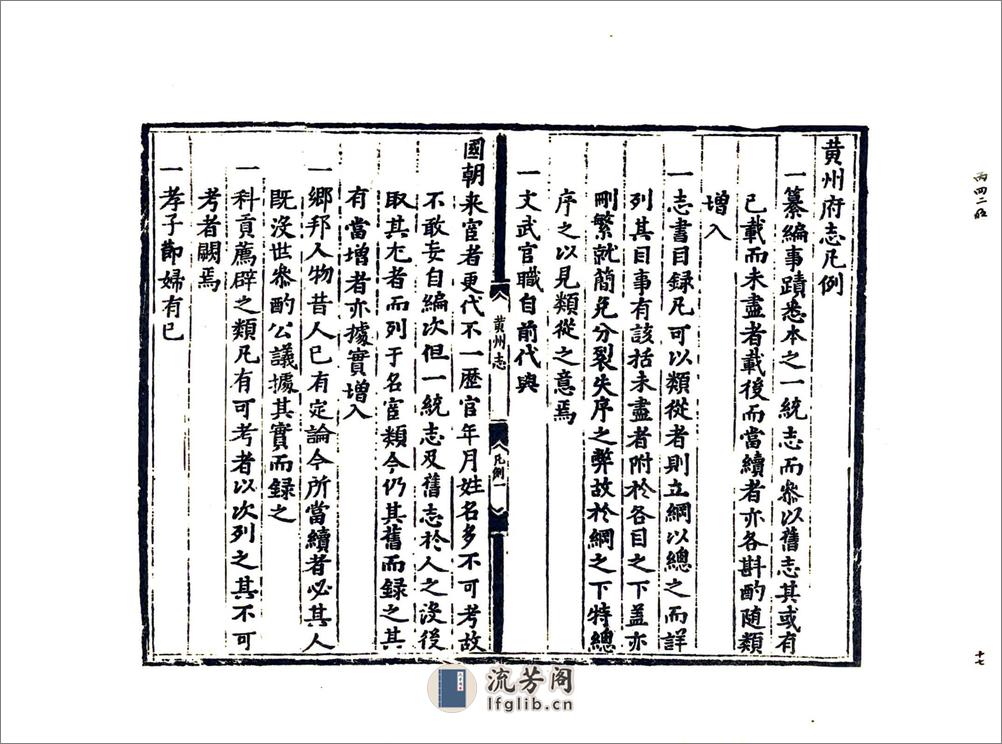 黄州府志凡例
一纂編事蹟悉本之一統志而參以舊志其或有
已載而未盡者載後而當續者亦各斟酌随類
增入
一志書目録凡可以類從者則立綱以總之而詳
列其目事有該括未盡者附於各目之下盖亦
刪繁就簡免分裂失序之弊故於綱之下特總
序之以見類從之意焉
一文武官職自前代與
黄州志
凡例一
國朝来宦者更代不一歴官年月姓名多不可考故
不敢妄自編次但一統志及舊志於人之没後
取其尤者而列于名宦類今仍其舊而録之其
有當增者亦據實增入
一鄉邦人物昔人已有定論今所當續者必其人
既没世參酌公議據其實而録之
一科貢薦辟之類凡有可考者以次列之其不可
考者闕焉
一孝子節婦有已
十七
流芳阁
lfglib.cn